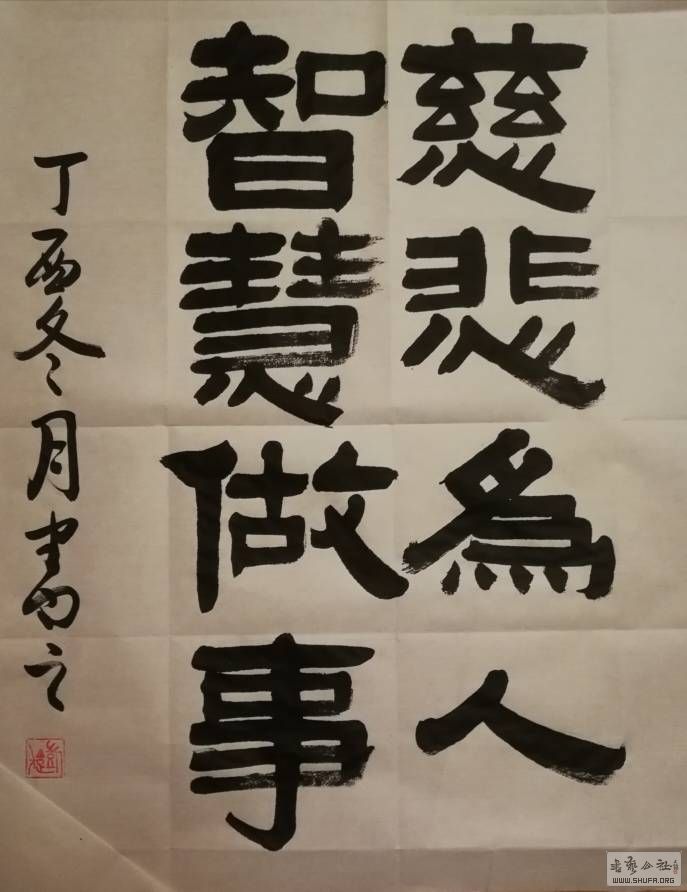 慈悲為人
智慧做事
丁酉冬月書之
WWW.SHUFA.ORG